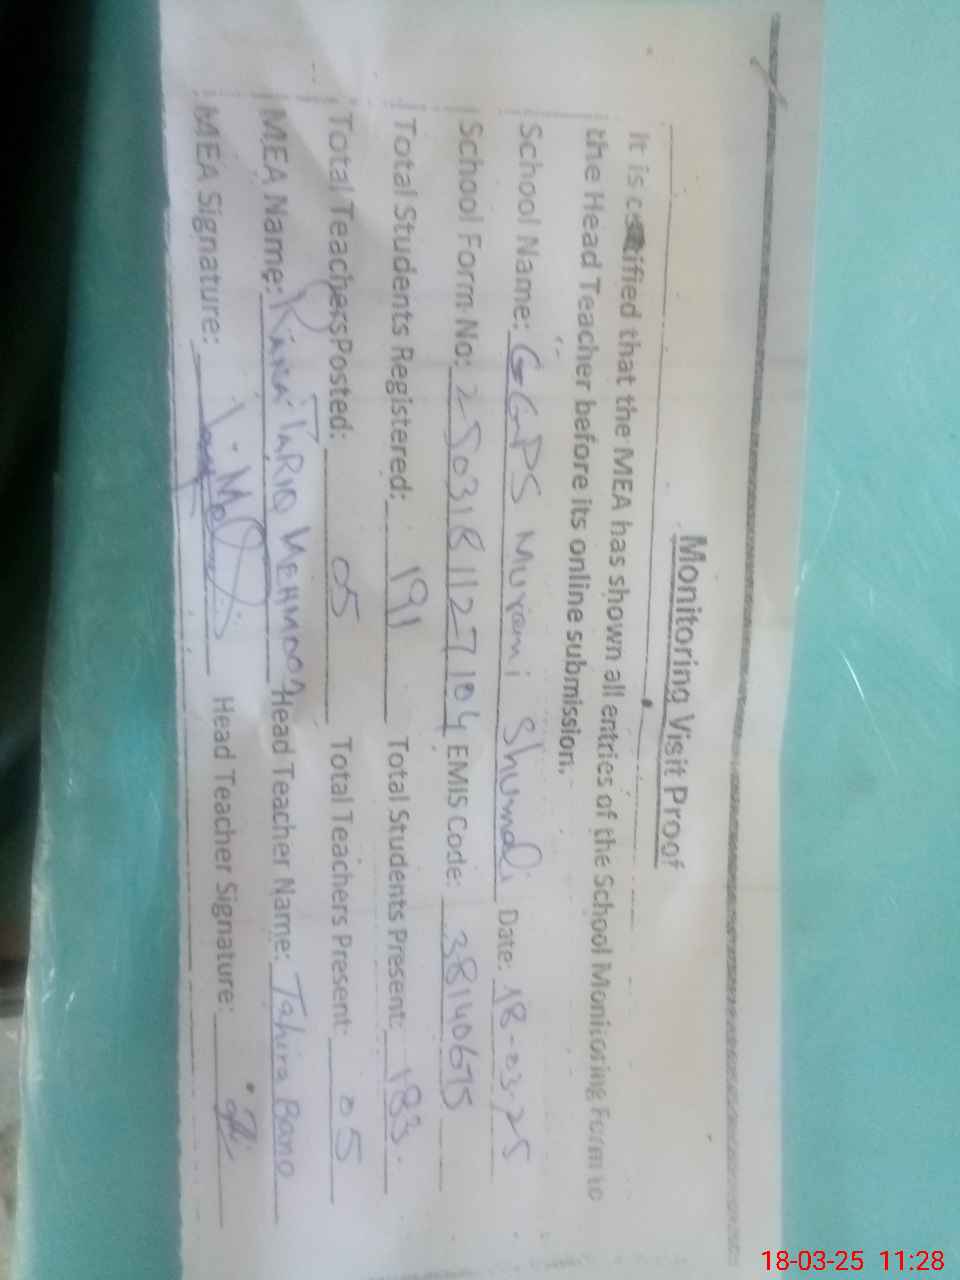 Monitoring Visit Proof
It is certified that the MEA has shown all entries of the School Monitoring Form to
the Head Teacher before its online submission.
School Name: GGPS Murami Shumali Date: 18-03-25
School Form No: 2503181127104 EMIS Code: 38140675
Total Students Registered: 191 Total Students Present: 183
Total Teachers Posted: 05 Total Teachers Present: 05
MEA Name: Rana TARIQ MEHMOOD Head Teacher Name: Tahira Bano
MEA Signature: Head Teacher Signature:
18-03-25 11:28